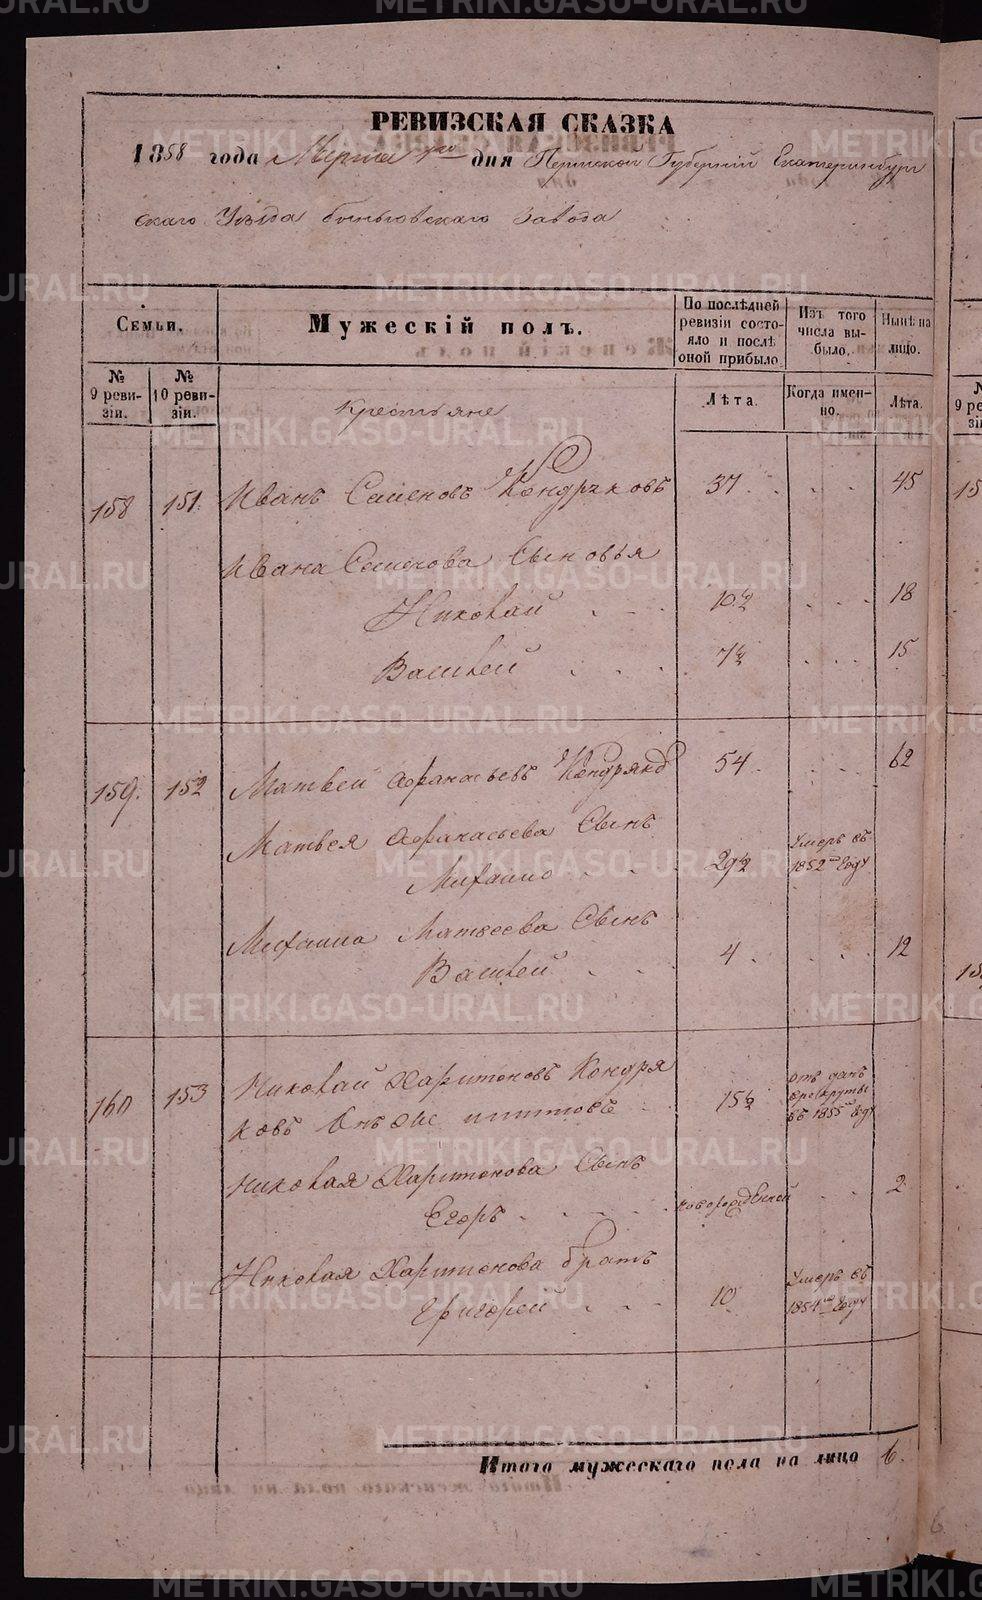 РЕВИЗСКАЯ СКАЗКА
1858 года Марта 1го дня Пермской Губерніи Екатеринбург
скаго Уѣзда Быньговскаго Завода
Семьи.
Мужескій полъ.
По послѣдней ревизіи состояло и послѣ оной прибыло.
Изъ того числа выбыло.
Нынѣ на лицо.
№ 9 ревизіи.
№ 10 ревизіи.
Крестьяне
Лѣта.
Когда именно.
Лѣта.
158 151. Иванъ Семеновъ Кондряковъ 37 . . . 45
Ивана Семенова Сыновья
Николай . . . 10½ . . . 18
Василей . . . 7½ . . . 15
159. 152 Матвей Афанасьевъ Кондряко 54 . . . 62
Матвея Афанасьева Сынъ
Михаило . . 29½ Умеръ въ 1852м Году
Михаила Матвеева Сынъ
Василей . . . 4 . . . 12
160 153 Николай Харитоновъ Кондря
ковъ Онъ же 15½ Отъ данъ в рекруты въ 1855м Году
Николая Харитонова Сынъ
Егоръ . . . новорожденой . . 2
Николая Харитонова братъ
Григорей . . . 10 Умеръ въ 1854мъ Году
Итого мужескаго пола на лицо 6.
METRIKI.GASO-URAL.RU